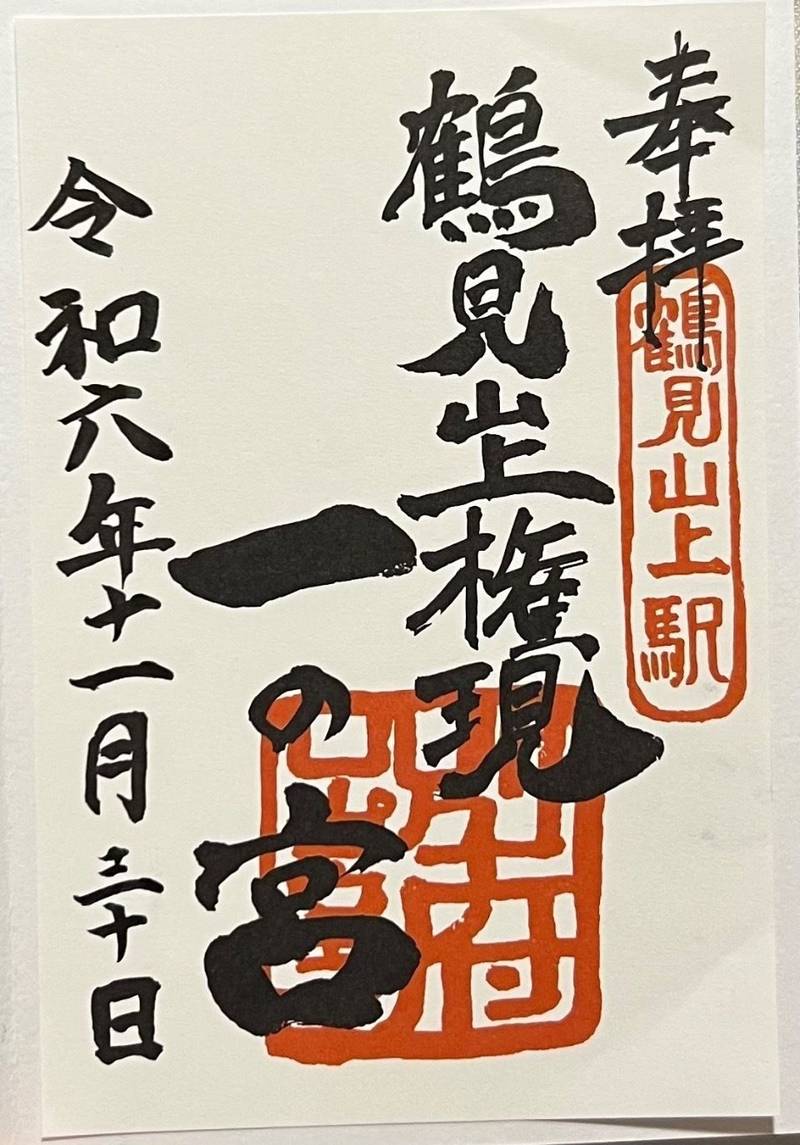 奉拝
鶴見山上駅
鶴見山上権現
一の宮
別府
令和六年十一月三十日